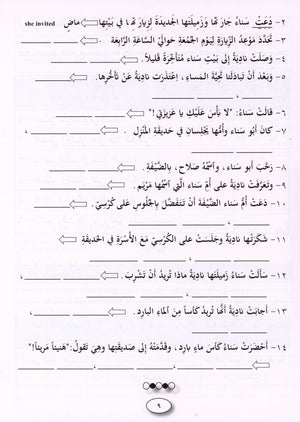 ٢- دَعَتْ سَناءُ جَارَتَها وَزَميلَتَها الجَديدَةَ لزِيارَتها في بَيْتِها ⇐ ماضٍ she invited
٣- تَحَدَّدَ مَوْعِدُ الزِّيارَةِ لِيَوْمِ الجُمْعَةِ حَوالَيْ السَّاعَةِ الرَّابِعَةِ. ⇐
٤- وَصَلَتْ نادِيَةُ إلى بَيْتِ سَناء مُتَأَخِّرَةً قَليلاً. ⇐
٥- وَبَعْدَ أَنْ تَبادَلَتا تَحِيَّةَ المَساءِ، اِعْتَذَرَت نادِيَةُ عَنْ تَأَخُّرِها. ⇐
٦- قالَتْ سَناءُ: "لا بَأْسَ عَلَيْكِ يا عَزيزَتي!" ⇐
٧- كانَ أَبو سَناء وَأُمُّها يَجْلِسانِ في حَديقَةِ المَنْزِل. ⇐
٨- رَحَّبَ أَبو سَناء، وَاسْمُهُ صَلاح، بِالضَّيْفَةِ. ⇐
٩- وَتَعَرَّفَتْ نادِيَةُ عَلى أُمِّ سَناء الَّتي اسْمُها مَرْيَم. ⇐
١٠- دَعَتْ أُمُّ سَناء الضَّيْفَةَ أَنْ تَتَفَضَّلَ بِالجُلُوسِ عَلى كُرْسِيّ. ⇐
١١- شَكَرَتْها نادِيَةُ وجَلَسَتْ على الكُرْسِيّ مَعَ الأُسْرَةِ في الحَديقَةِ ⇐
١٢- سَأَلَتْ سَناءُ زَميلَتَها نادِيَةَ ماذا تُريدُ أَنْ تَشْرِبَ. ⇐
١٣- أَجابَتْ نادِيَةُ أَنَّها تُريدُ كَأْساً مِنَ الماءِ البارِد. ⇐
١٤- أَحْضَرَتْ سَناءُ كَأْسَ ماءٍ بارِدٍ، وَقَدَّمَتْهُ إلى صَديقَتِها وهِيَ تَقُولُ:"هَنيئاً مَريئاً!" ⇐
٩